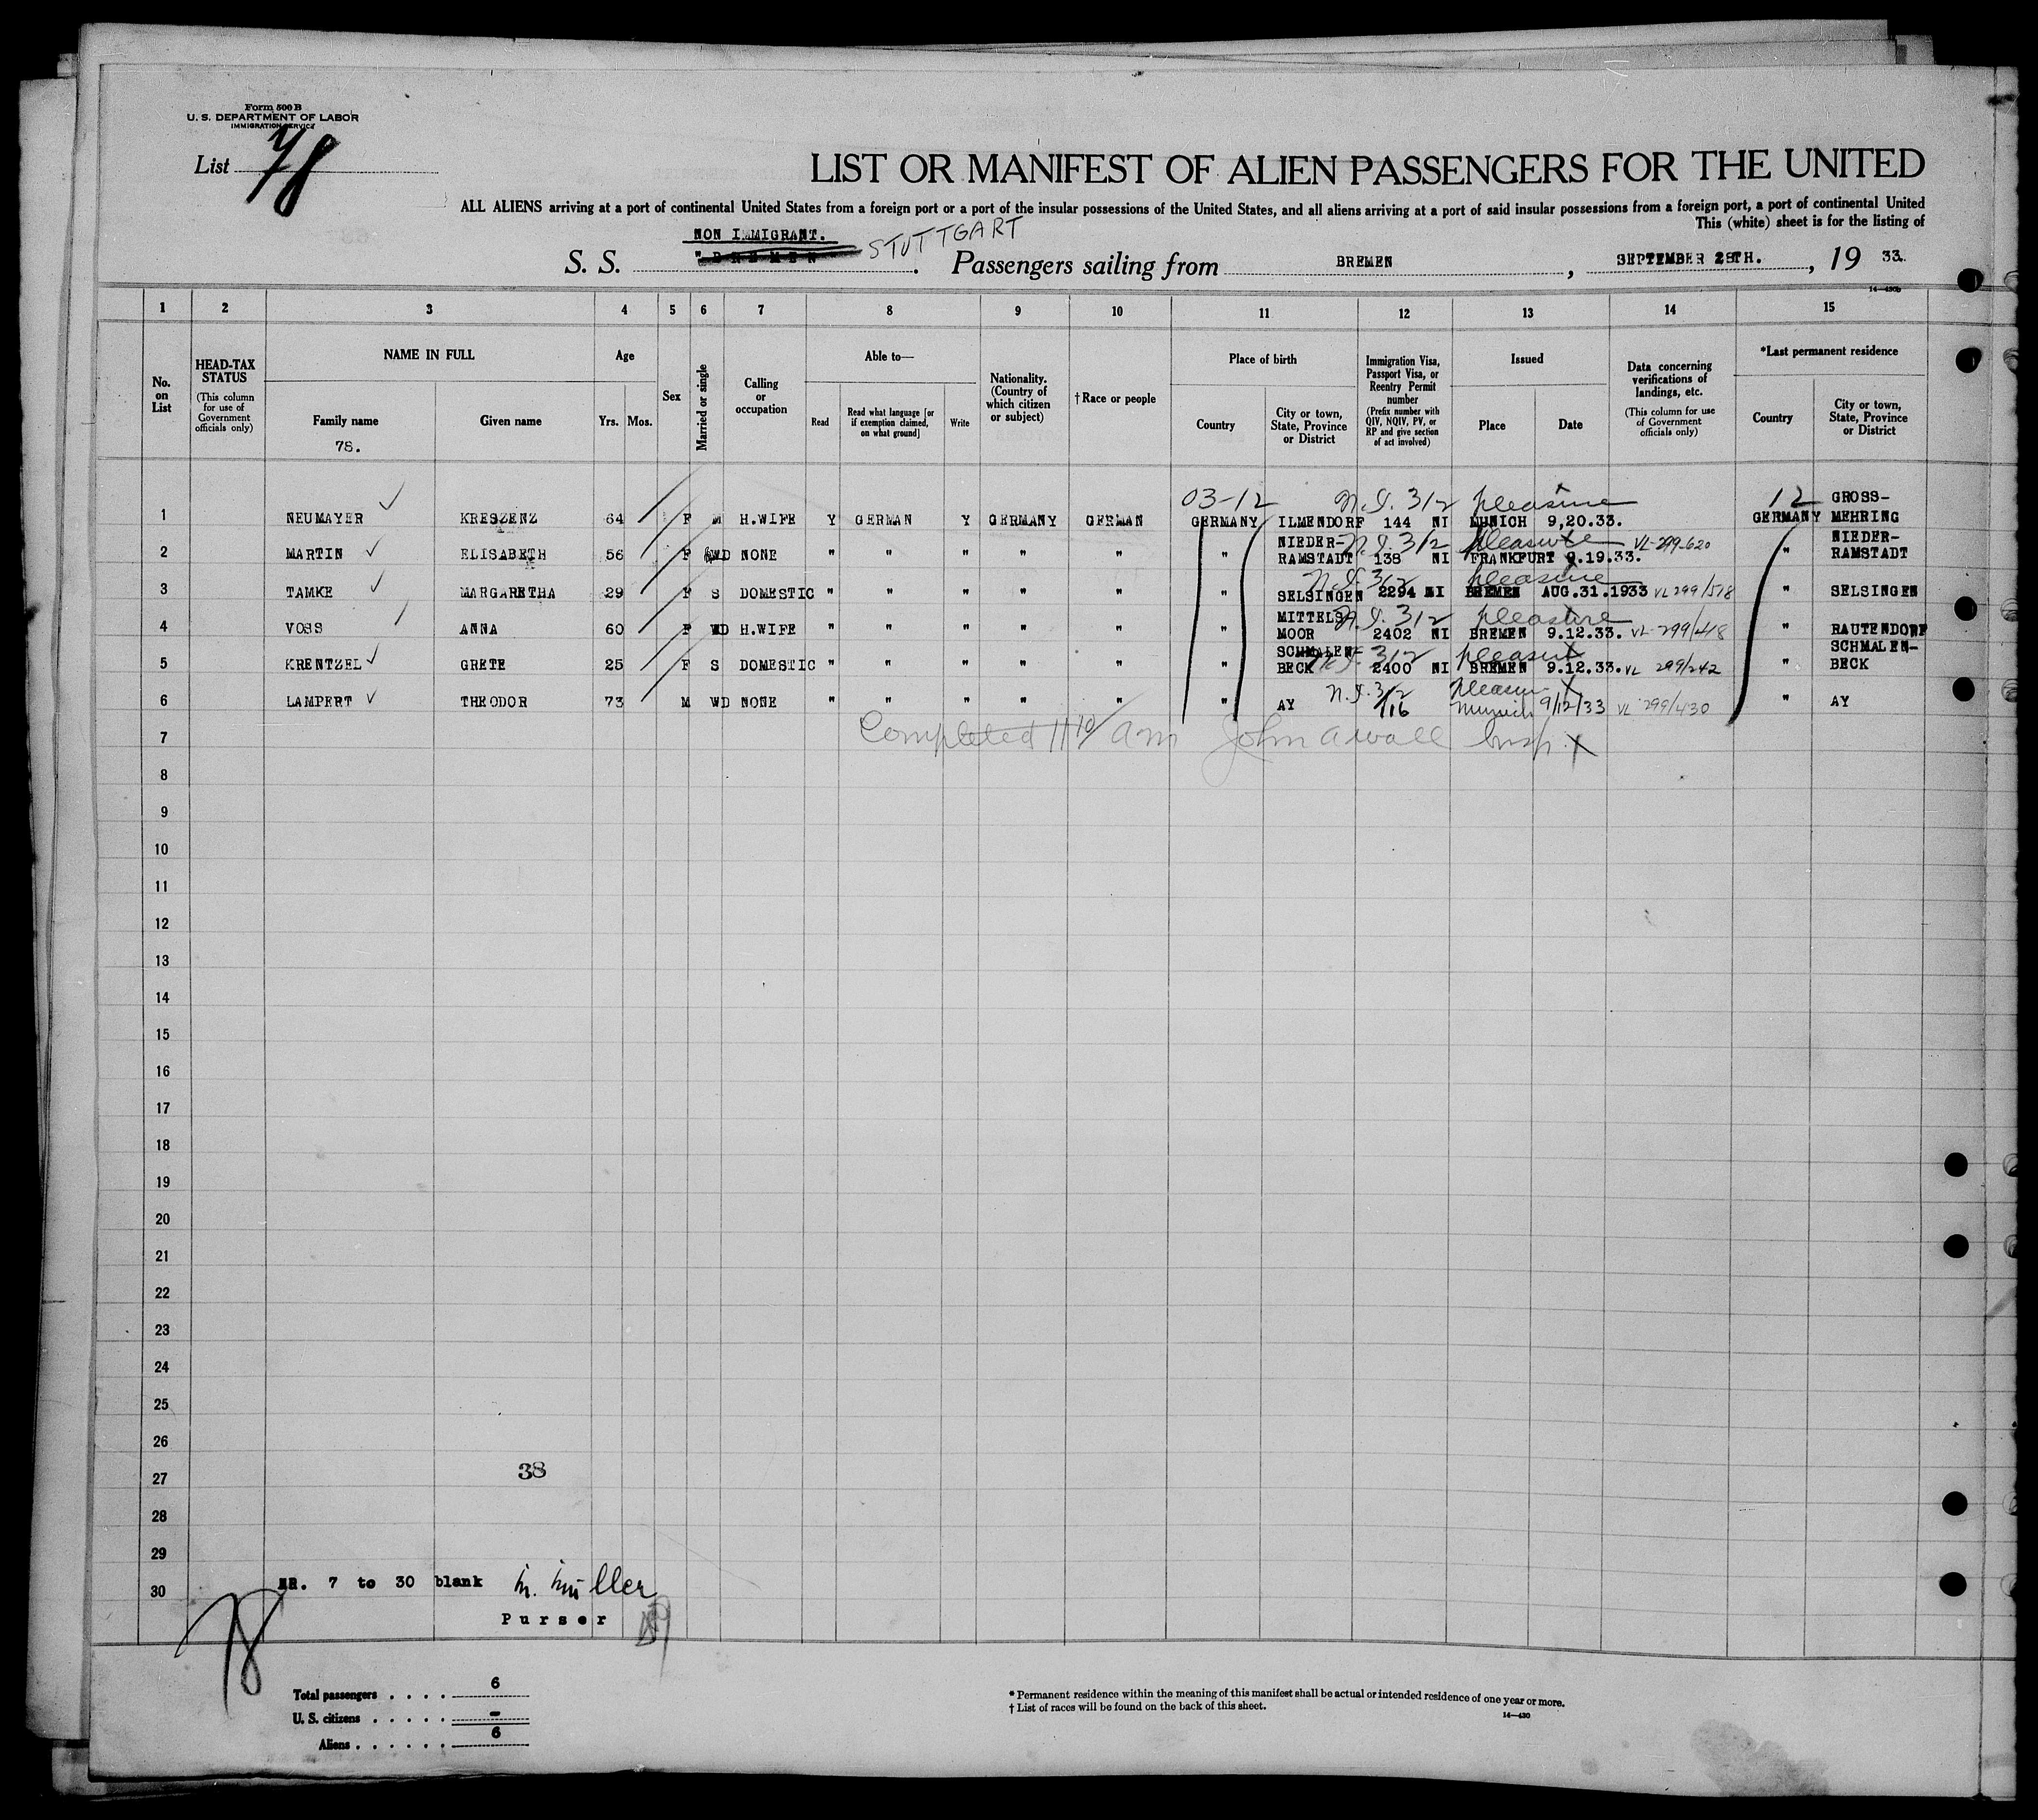 Form 500 B
U. S. DEPARTMENT OF LABOR
IMMIGRATION SERVICE
List 78
LIST OR MANIFEST OF ALIEN PASSENGERS FOR THE UNITED
ALL ALIENS arriving at a port of continental United States from a foreign port or a port of the insular possessions of the United States, and all aliens arriving at a port of said insular possessions from a foreign port, a port of continental United
This (white) sheet is for the listing of
NON IMMIGRANT.
S. S. "BREMEN STUTTGART. Passengers sailing from BREMEN, SEPTEMBER 28TH., 19 33.
14—430b
1 2 3 4 5 6 7 8 9 10 11 12 13 14 15
No. on List
HEAD-TAX STATUS (This column for use of Government officials only)
NAME IN FULL Family name Given name
78.
Age Yrs. Mos.
Sex
Married or single
Calling or occupation
Able to— Read Read what language [or if exemption claimed, on what ground] Write
Nationality. (Country of which citizen or subject)
†Race or people
Place of birth Country City or town, State, Province or District
Immigration Visa, Passport Visa, or Reentry Permit number (Prefix number with QIV, NQIV, PV, or RP and give section of act involved)
Issued Place Date
Data concerning verifications of landings, etc. (This column for use of Government officials only)
*Last permanent residence Country City or town, State, Province or District
03-12 N.I. 3/2 pleasure 12 GROSS-
1 NEUMAYER KRESZENZ 64 F M H.WIFE Y GERMAN Y GERMANY GERMAN GERMANY ILMENDORF 144 NI MUNICH 9,20.33. GERMANY MEHRING
NIEDER- N.I. 3/2 pleasure VL-299-620 NIEDER-
2 MARTIN ELISABETH 56 F WD NONE " " " " " " RAMSTADT 138 NI FRANKFURT 9.19.33. " RAMSTADT
N.I. 3/2 pleasure
3 TAMKE MARGARETHA 29 F S DOMESTIC " " " " " " SELSINGEN 2294 NI BREMEN AUG.31.1933 VL 299/518 " SELSINGEN
MITTELS- N.I. 3/2 pleasure
4 VOSS ANNA 60 F WD H.WIFE " " " " " " MOOR 2402 NI BREMEN 9.12.33. VL-299/418 " RAUTENDORF
SCHMALEN- N.I. 3/2 pleasure SCHMALEN-
5 KRENTZEL GRETE 25 F S DOMESTIC " " " " " " BECK 2400 NI BREMEN 9.12.33. VL 299/242 " BECK
N.I. 3/2 pleasure
6 LAMPERT THEODOR 73 M WD NONE " " " " " " AY 116 Munich 9/12/33 VL 299/430 " AY
7 Completed 11 10/ am John A Wall Insp.
8
9
10
11
12
13
14
15
16
17
18
19
20
21
22
23
24
25
26
27 38
28
29
30 NR. 7 to 30 blank M. Müller
Purser
78
Total passengers . . . . 6
U. S. citizens . . . . . -
Aliens . . . . . . 6
* Permanent residence within the meaning of this manifest shall be actual or intended residence of one year or more.
† List of races will be found on the back of this sheet.
14—430